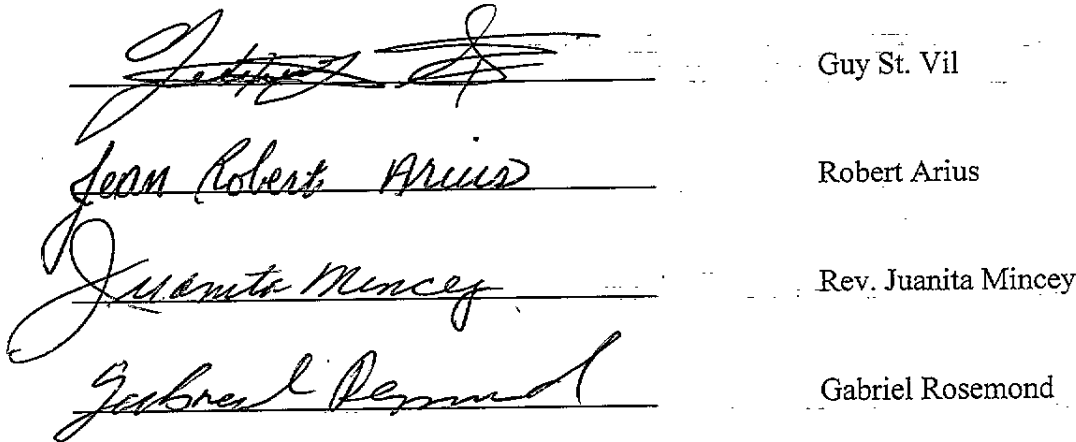 Guy St. Vil
Jean Robert Arius Robert Arius
Juanita Mincey Rev. Juanita Mincey
Gabriel Gabriel Rosemond